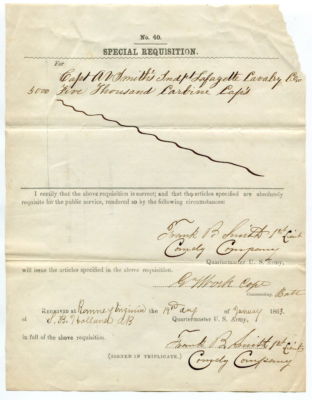 No. 40.
SPECIAL REQUISITION.
For
Capt A V Smith's Indpt Lafayette Cavalry Co
5000 Five Thousand Carbine Caps
I certify that the above requisition is correct; and that the articles specified are absolutely
requisite for the public service, rendered so by the following circumstances:
Frank B Smith 1st Lieut
Comdg Company
Quartermaster U. S. Army,
will issue the articles specified in the above requisition.
Work Capt
Commanding Batt
RECEIVED at Romney Virginia the 19th day of January 1863,
of Holland Quartermaster U. S. Army,
in full of the above requisition.
Frank B Smith 1st Lieut
Comdg Company
(SIGNED IN TRIPLICATE.)